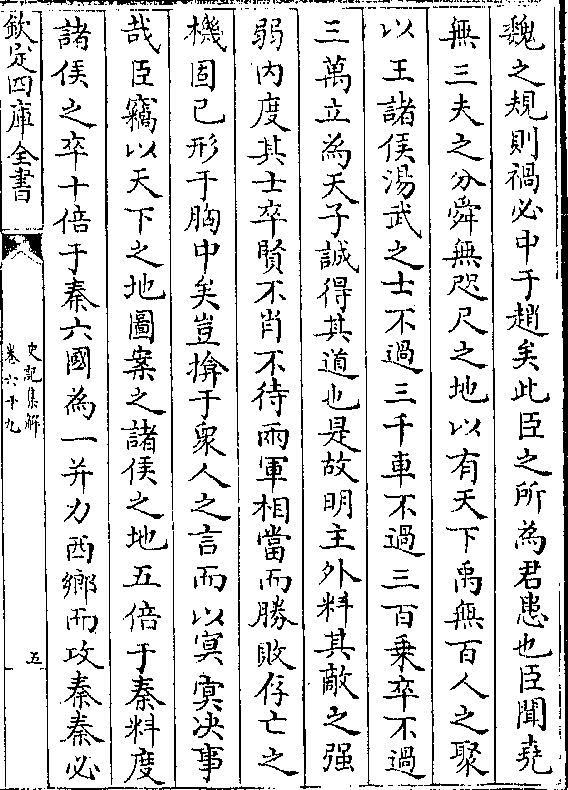 魏之規則禍必中于趙矣此臣之所為君患也臣聞堯
無三夫之分舜無咫尺之地以有天下禹無百人之聚
以王諸侯湯武之士不過三千車不過三百乗卒不過
三萬立為天子誠得其道也是故明主外料其敵之强
弱内度其士卒賢不肖不待兩軍相當而勝敗存亡之
機固已形于胸中矣豈揜于衆人之言而以冥冥决事
哉臣竊以天下之地圖案之諸侯之地五倍于秦料度
諸侯之卒十倍于秦六國為一并力西鄉而攻秦秦必
欽定四庫全書
史記集解
卷六十九
五